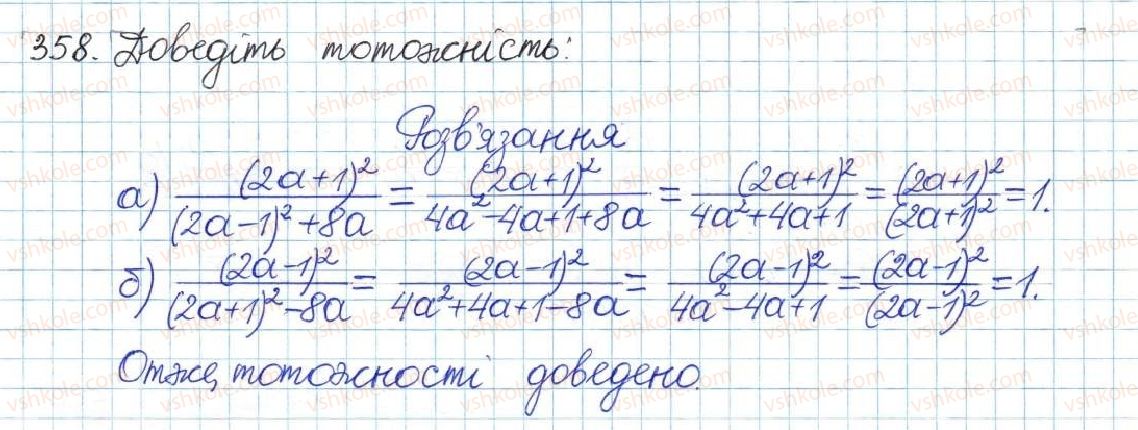 358. Доведіть тотожність:
Розв'язання
а) (2a+1)²/((2a-1)²+8a) = (2a+1)²/(4a²-4a+1+8a) = (2a+1)²/(4a²+4a+1) = (2a+1)²/(2a+1)² = 1.
б) (2a-1)²/((2a+1)²-8a) = (2a-1)²/(4a²+4a+1-8a) = (2a-1)²/(4a²-4a+1) = (2a-1)²/(2a-1)² = 1.
Отже, тотожності доведено.